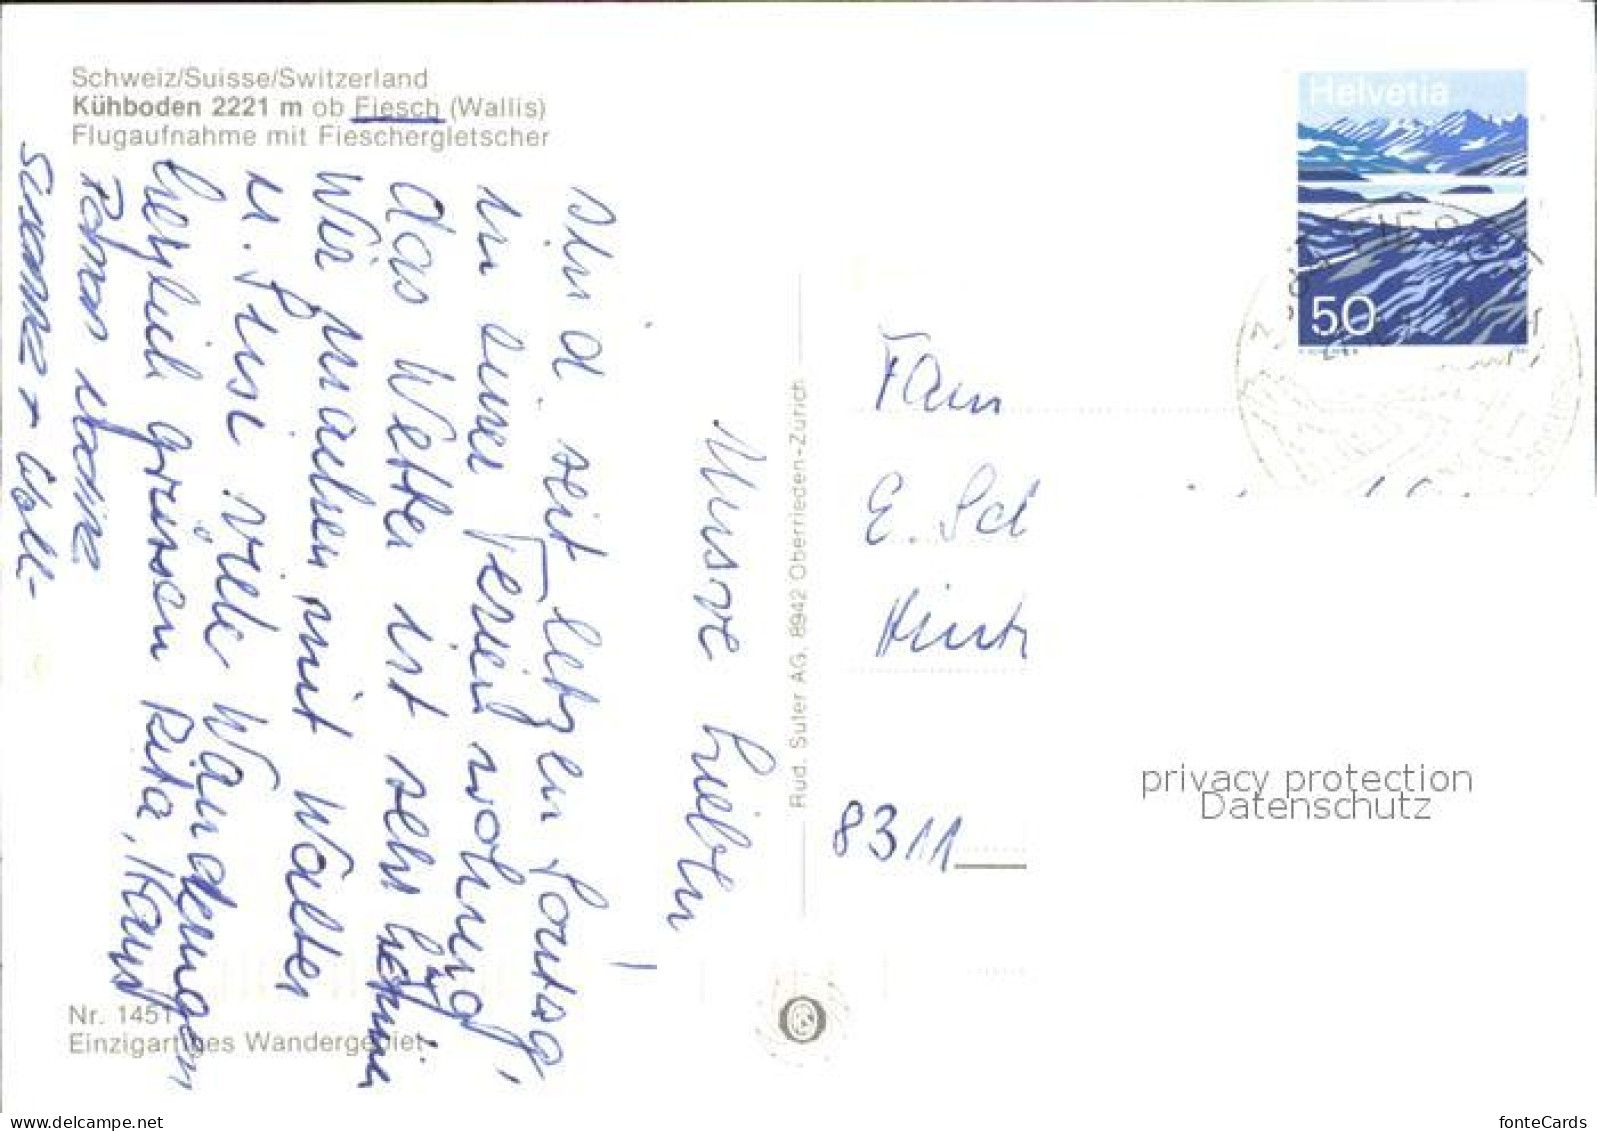 Schweiz/Suisse/Switzerland
Kühboden 2221 m ob Fiesch (Wallis)
Flugaufnahme mit Fieschergletscher
Unsre Lieben
Sind seit letzten Sontag
in einer Ferienwohnung,
das Wetter ist sehr
Wir machen mit Walter
u. Susi viele Wanderungen
herzlich grüssen Rita, Kari
Roman Nadine
Susanne + Ueli-
Nr. 1451
Einzigartiges Wandergebiet
Rud. Suter AG, 8942 Oberrieden-Zürich
Helvetia
50
Fam
E. Sch
8311
privacy protection
Datenschutz
www.delcampe.net
fonteCards